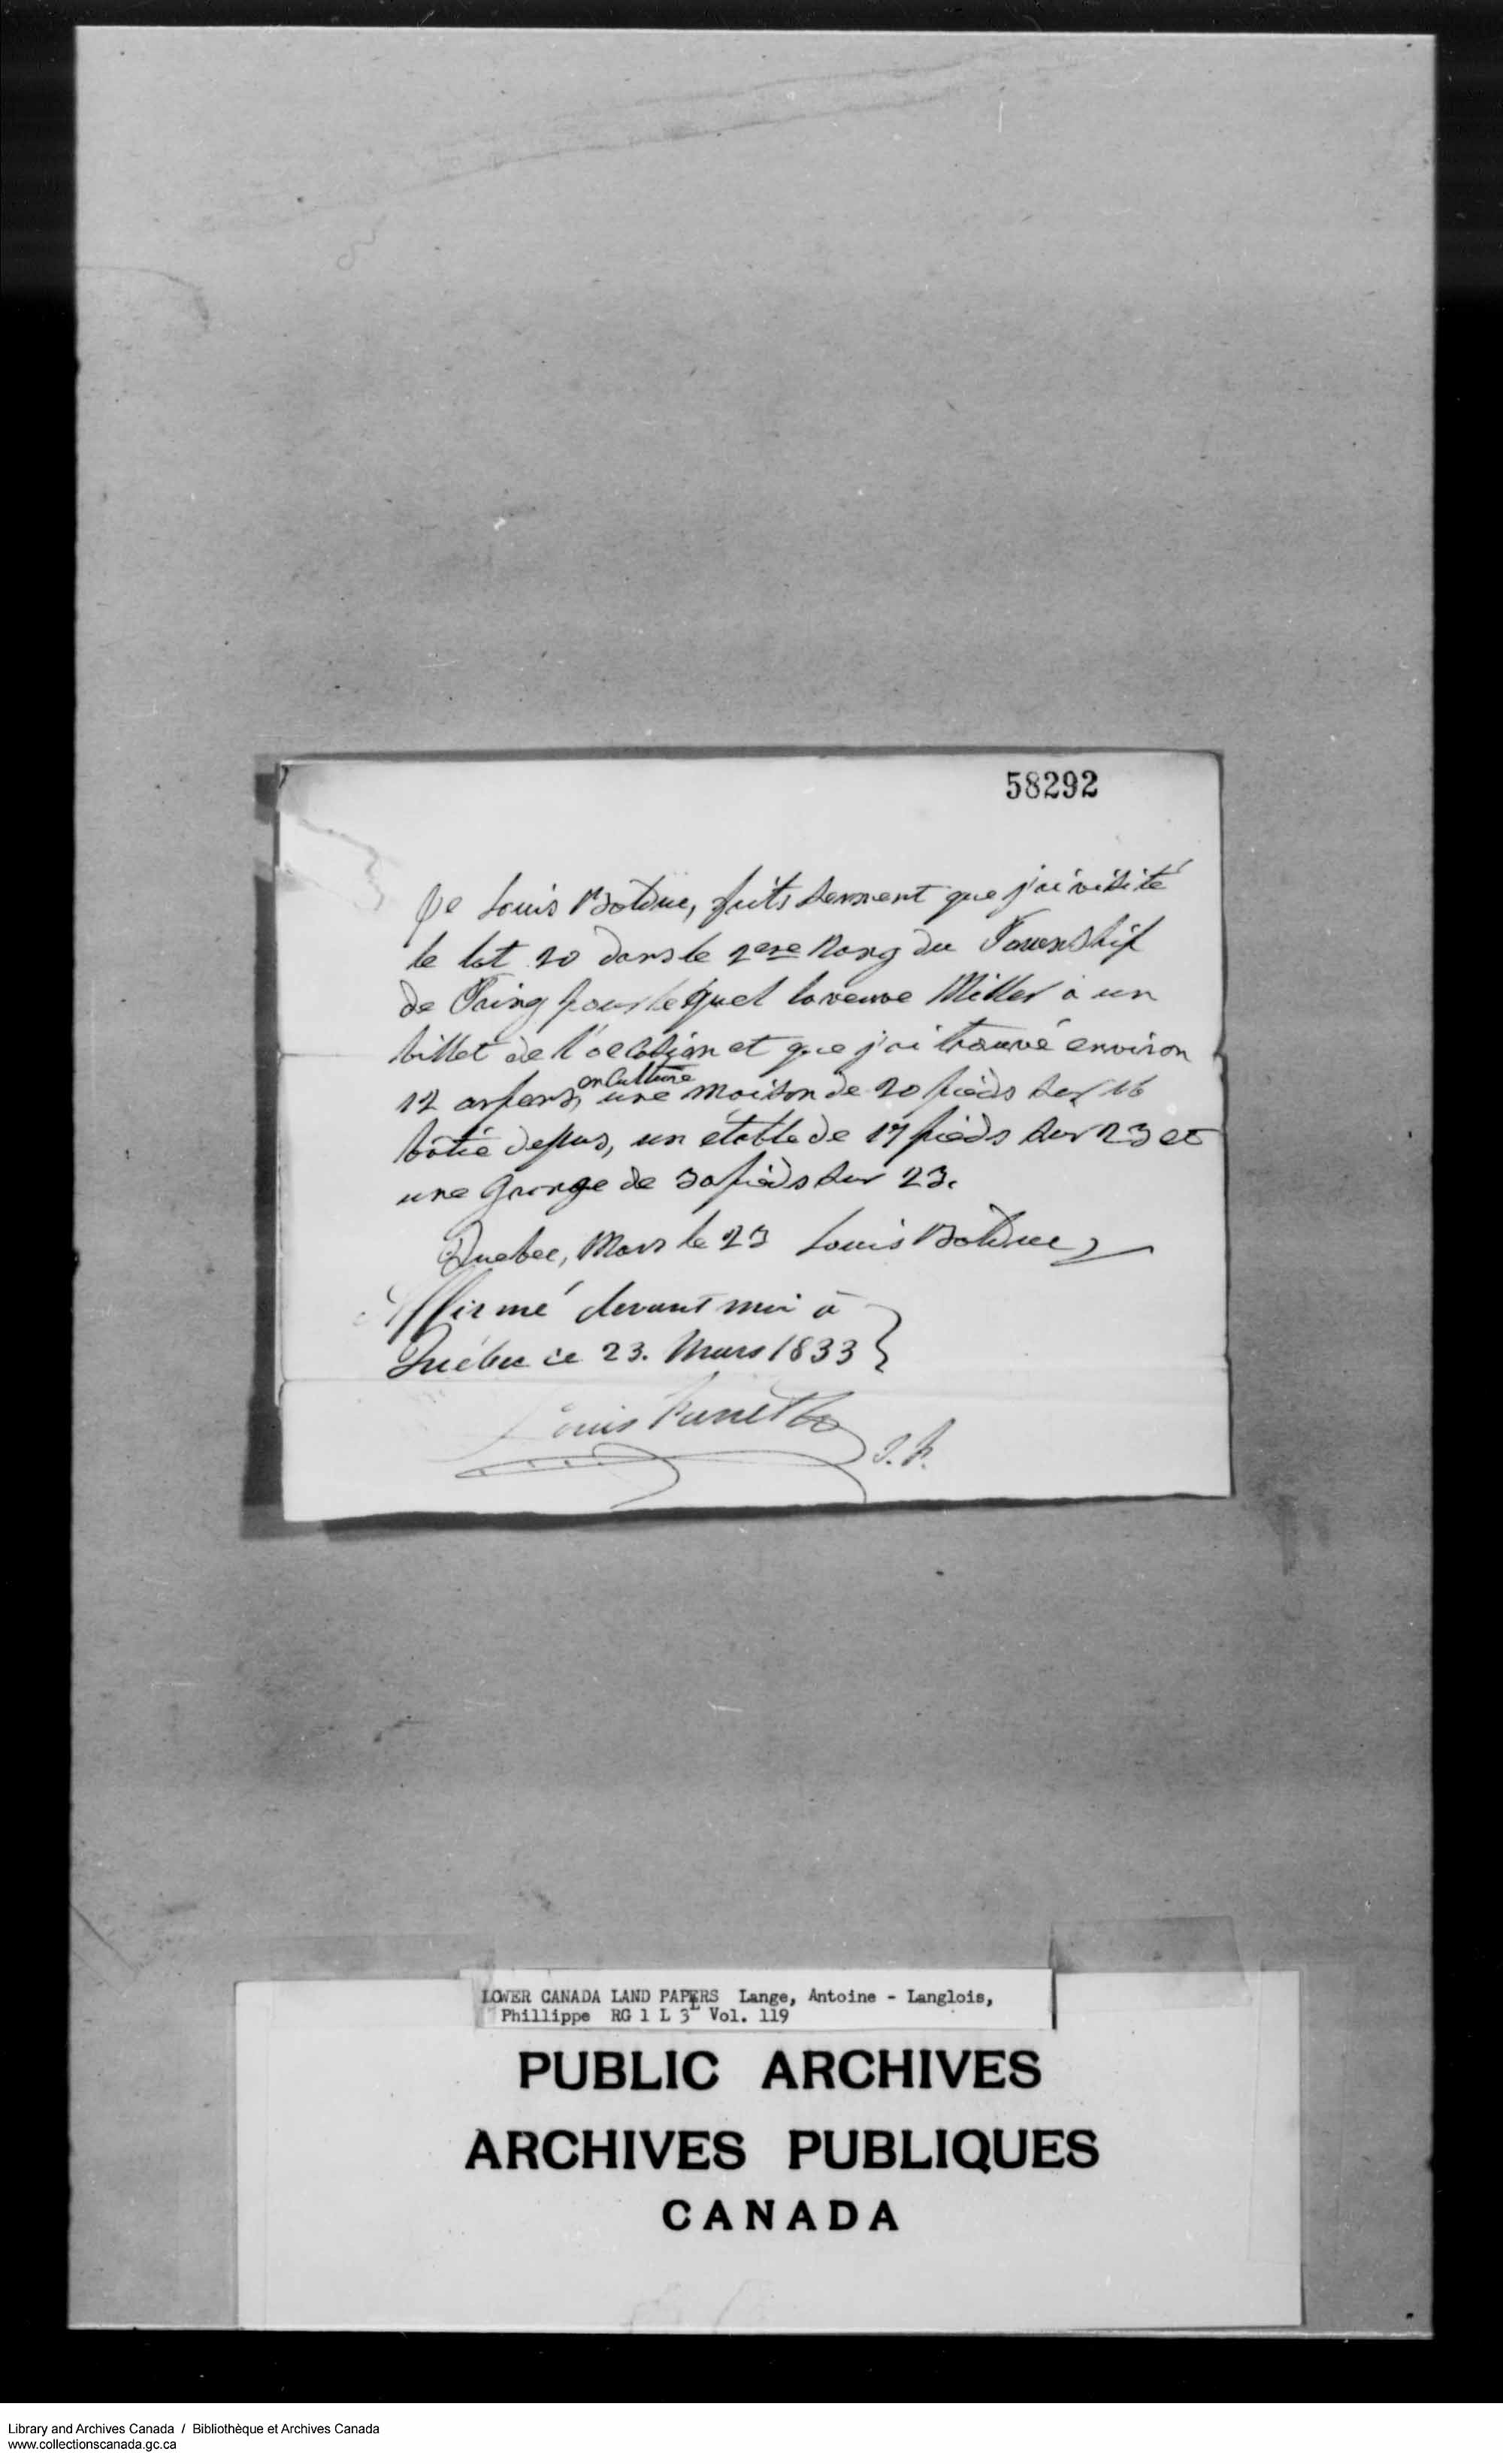 58292
Je Louis Bolduc, fais serment que j'ai visité
le lot 20 dans le 2ere Rang du Township
de Tring pour lequel la veuve Miller a un
billet de l'ocation et que j'ai trouvé environ
12 arpens en culture, une maison de 20 pieds sur 16
bâtie dessus, un étable de 17 pieds sur 23 et
une Grange de 30 pieds sur 23.
Quebec, Mars le 23 Louis Bolduc
Affirmé devant moi à
Québec ce 23. Mars 1833
Louis J.P.
LOWER CANADA LAND PAPERS Lange, Antoine - Langlois,
Phillippe RG 1 L 3L Vol. 119
PUBLIC ARCHIVES
ARCHIVES PUBLIQUES
CANADA
Library and Archives Canada / Bibliothèque et Archives Canada
www.collectionscanada.gc.ca